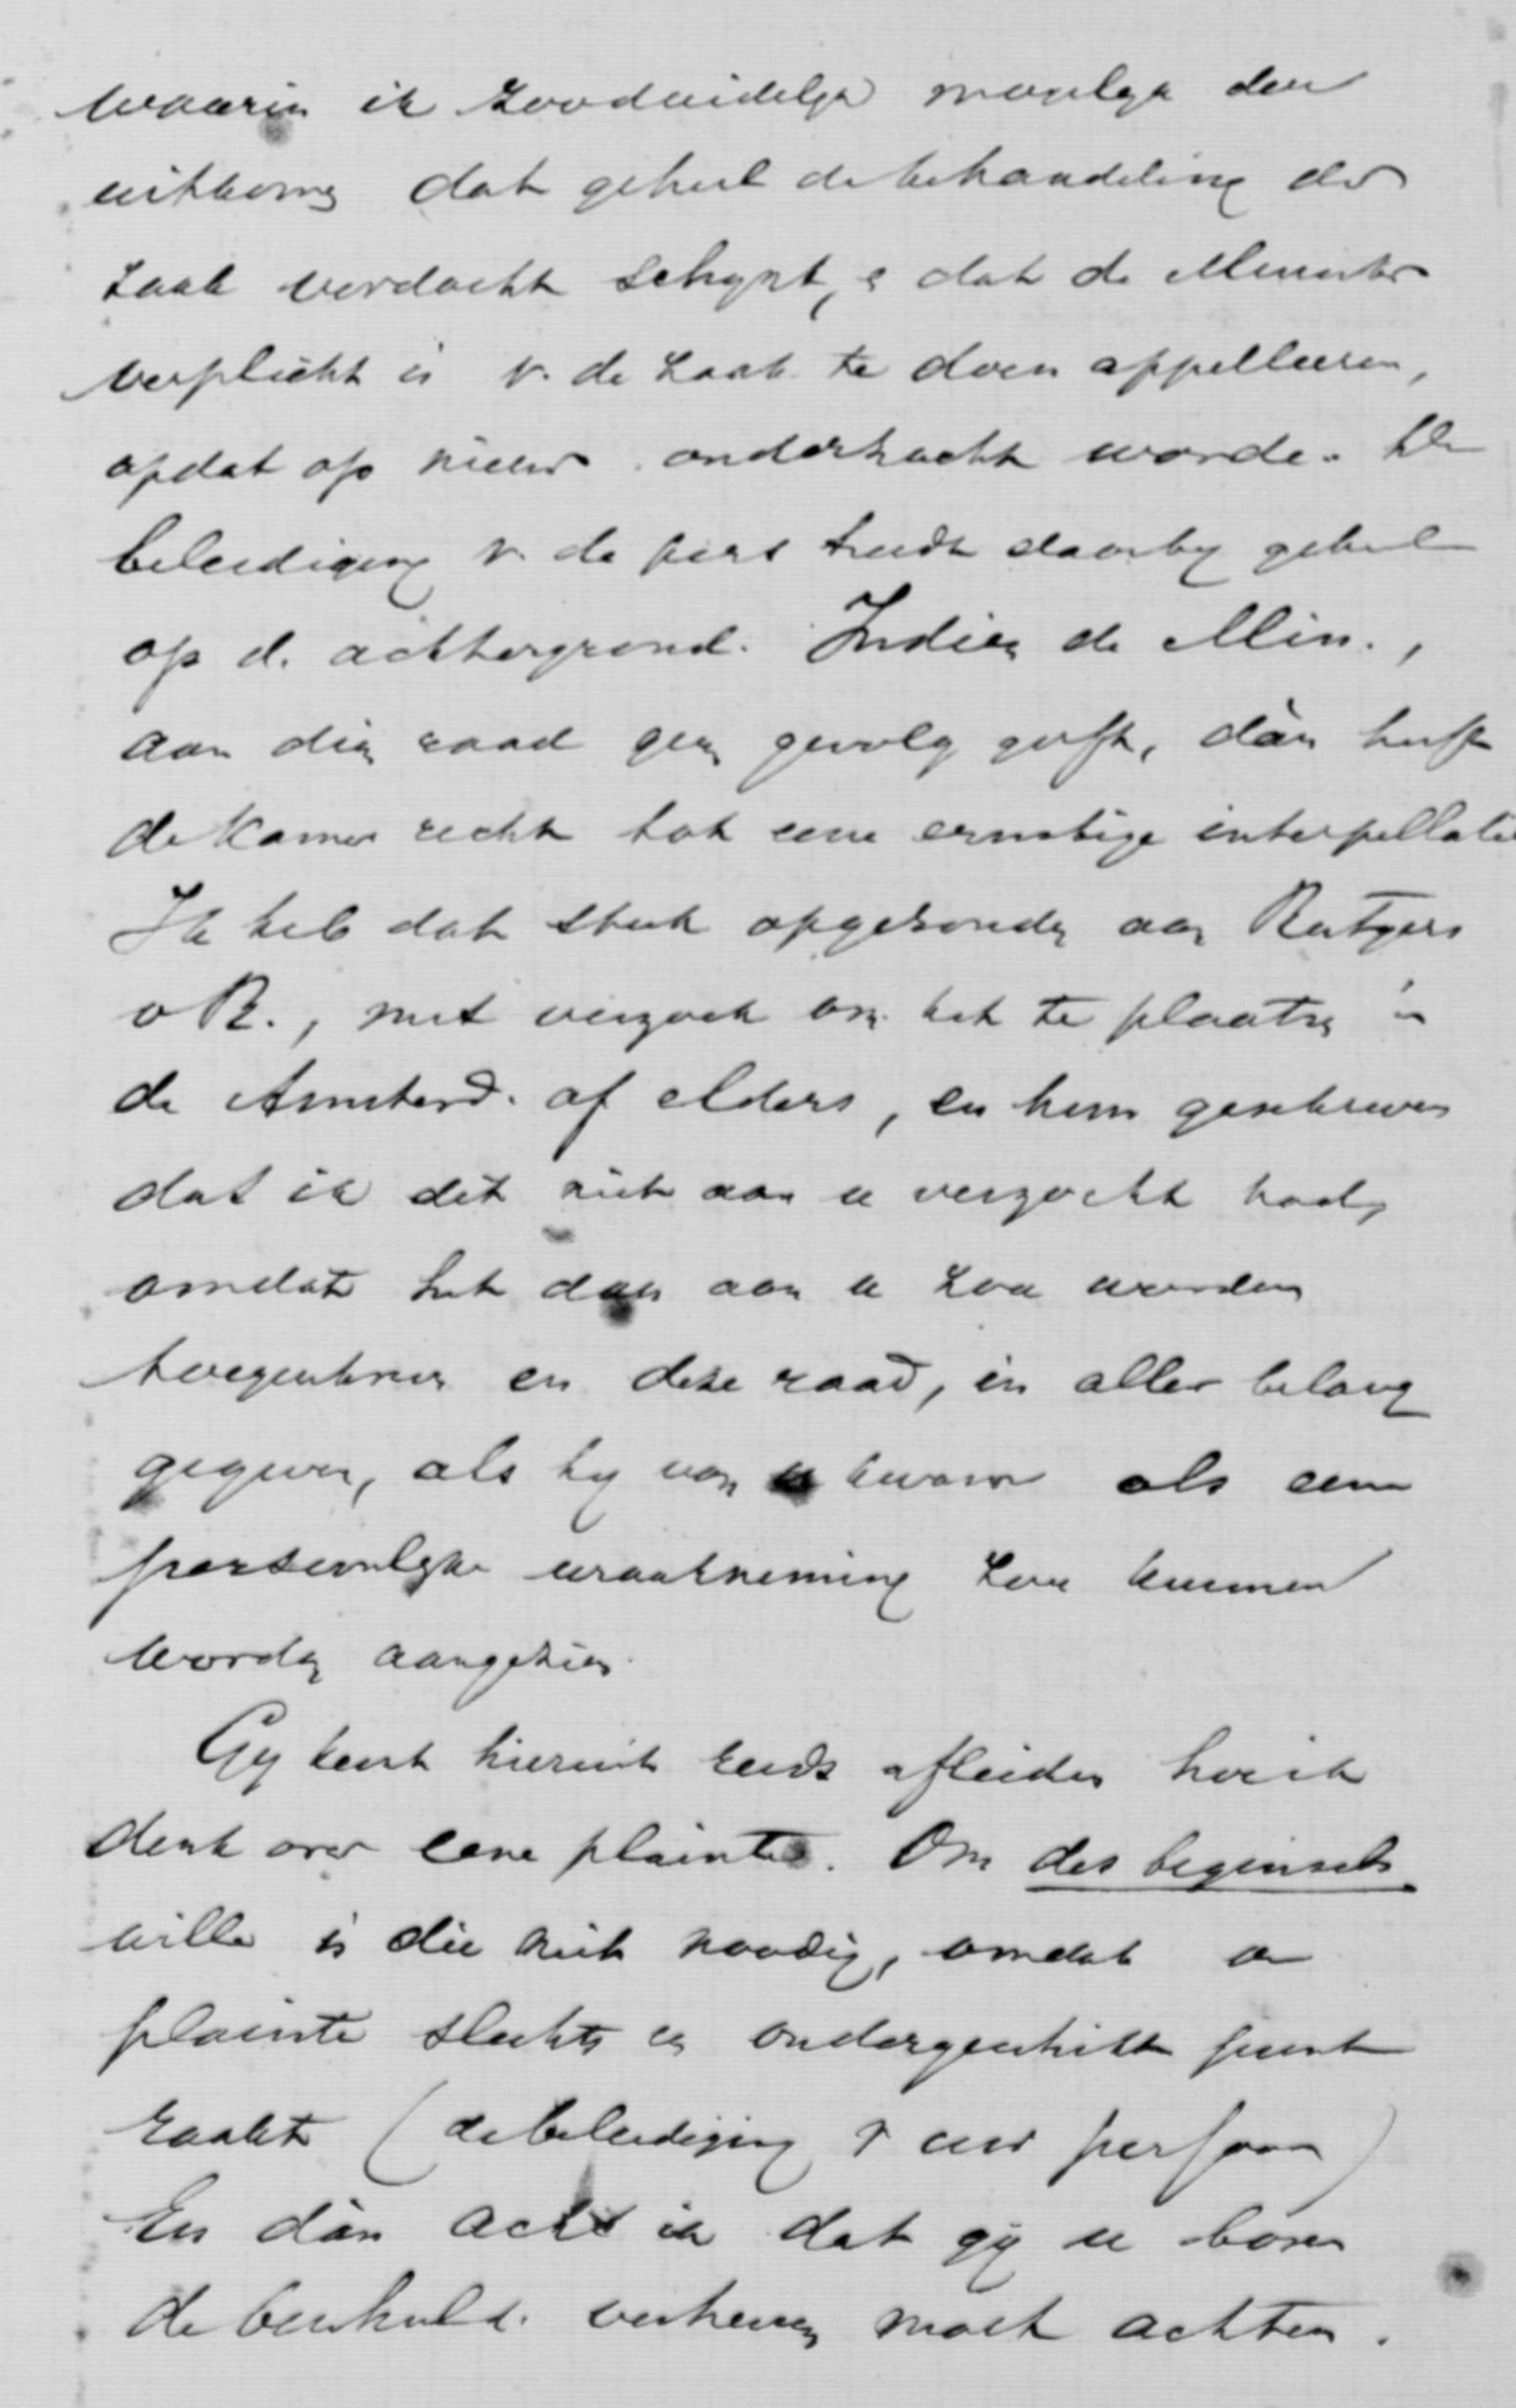 waarin ik zooduidelijk mogelijk doe
uitkomen dat geheel de behandeling der
zaak verdacht schijnt, & dat de Minister
verplicht is v. de zaak te doen appelleeren,
opdat op nieuw onderzocht worde. De
beleediging v. de pers treedt daarby geheel
op d. achtergrond. Indien de Min.,
aan dien raad geen gevolg geeft, dàn heeft
de Kamer recht tot eene ernstige interpellatie
Ik heb dat stuk opgezonden aan Rutgers
v R., met verzoek om het te plaatsen in
de Amsterd. of elders, en hem geschreven
dat ik dit niet aan u verzocht had,
omdat het dan aan u zou worden
toegeschreven en deze raad, in aller belang
gegeven, als hy van u kwam als eene
persoonlijke wraakneming zou kunnen
worden aangezien.
Gy kunt hieruit reeds afleiden hoe ik
denk over eene plainte. Om des beginsels
wille is die niet noodig, omdat de
plainte slechts een ondergeschikt punt
raakt (de beleediging v uw persoon)
En dàn acht ik dat gij u boven
de beschuld. verheven moet achten.